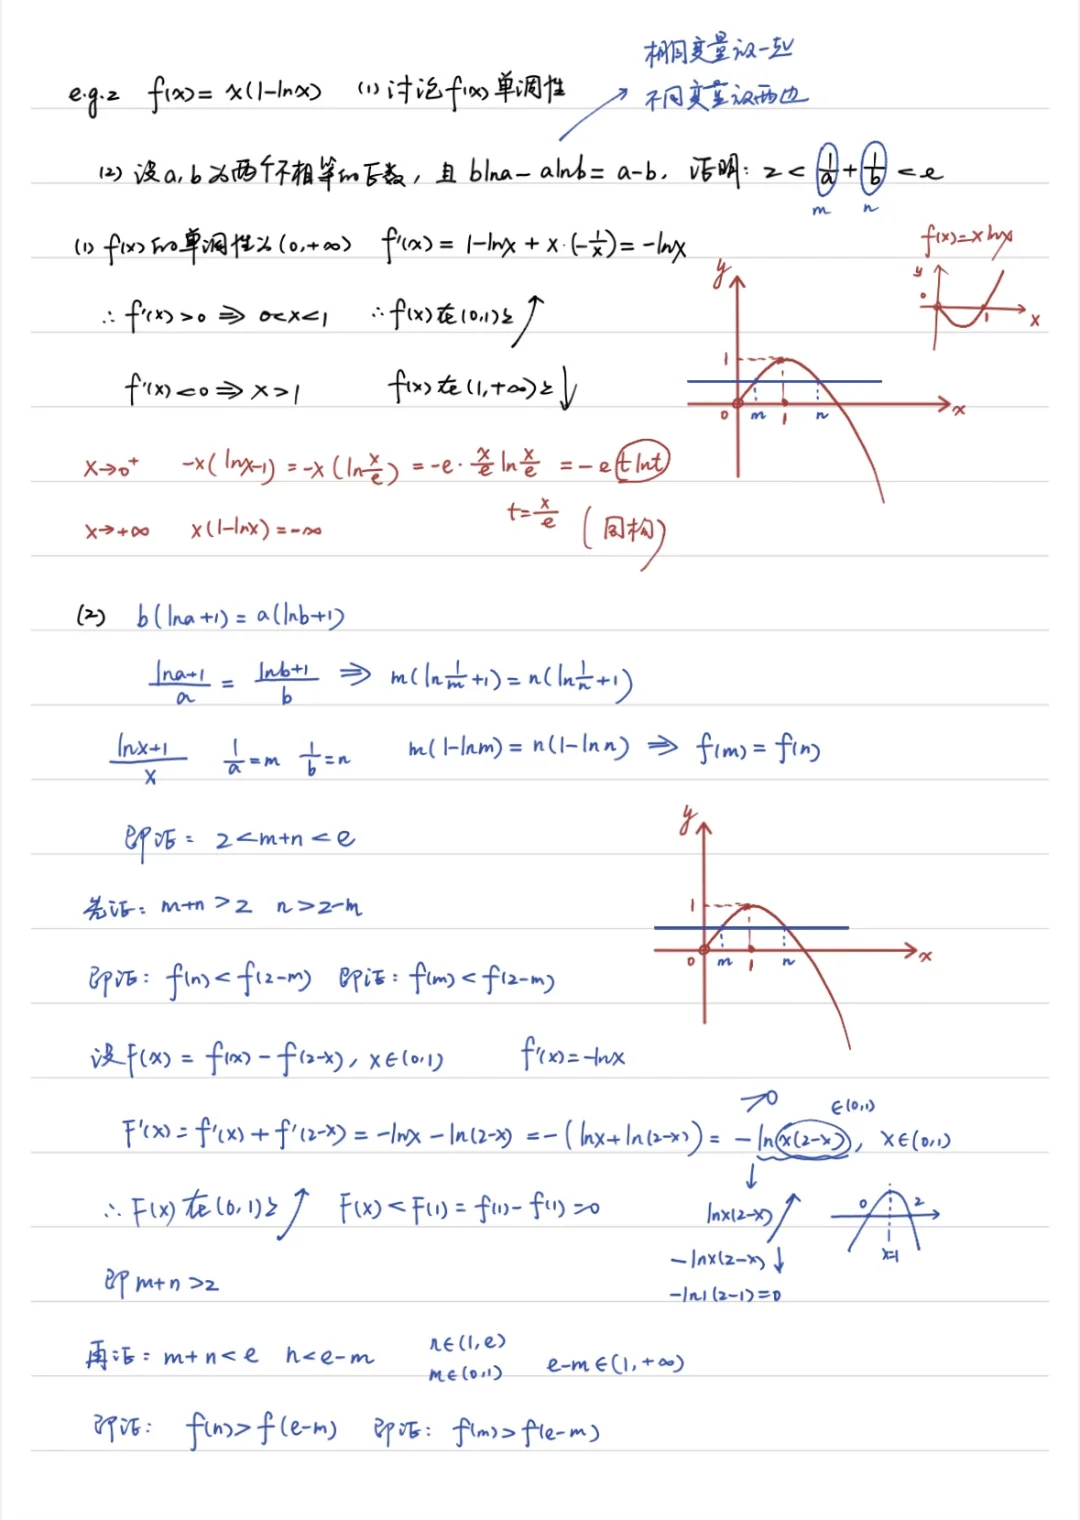 相同变量放一边
不同变量放两边
e.g.2 f(x)= x(1-lnx) (1)讨论f(x)单调性
(2)设a,b为两个不相等的正数，且blna-alnb=a-b，证明: 2<1/a+1/b<e
m n
(1) f(x)的单调性为(0,+∞) f'(x)=1-lnx+x·(-1/x)=-lnx
f(x)=xlnx
y
0 1 x
∴f'(x)>0⇒0<x<1 ∴f(x)在(0,1)上↗
f'(x)<0⇒x>1 f(x)在(1,+∞)上↓
y
1
0 m 1 n x
x→0⁺ -x(lnx-1)=-x(ln x/e)=-e·x/e ln x/e =-e tlnt
t=x/e (同构)
x→+∞ x(1-lnx)=-∞
(2) b(lna+1)=a(lnb+1)
(lna+1)/a = (lnb+1)/b ⇒ m(ln 1/m+1)=n(ln 1/n+1)
(lnx+1)/x 1/a=m 1/b=n m(1-lnm)=n(1-lnn) ⇒ f(m)=f(n)
即证: 2<m+n<e
先证: m+n>2 n>2-m
y
1
0 m 1 n x
即证: f(n)<f(2-m) 即证: f(m)<f(2-m)
设F(x)=f(x)-f(2-x), x∈(0,1) f'(x)=-lnx
>0 ∈(0,1)
F'(x)=f'(x)+f'(2-x)=-lnx-ln(2-x)=-(lnx+ln(2-x))=-ln(x(2-x)), x∈(0,1)
∴F(x)在(0,1)上↗ F(x)<F(1)=f(1)-f(1)=0
lnx(2-x)↗
0 2
x=1
-lnx(2-x)↓
-ln1(2-1)=0
即m+n>2
再证: m+n<e n<e-m n∈(1,e)
m∈(0,1) e-m∈(1,+∞)
即证: f(n)>f(e-m) 即证: f(m)>f(e-m)